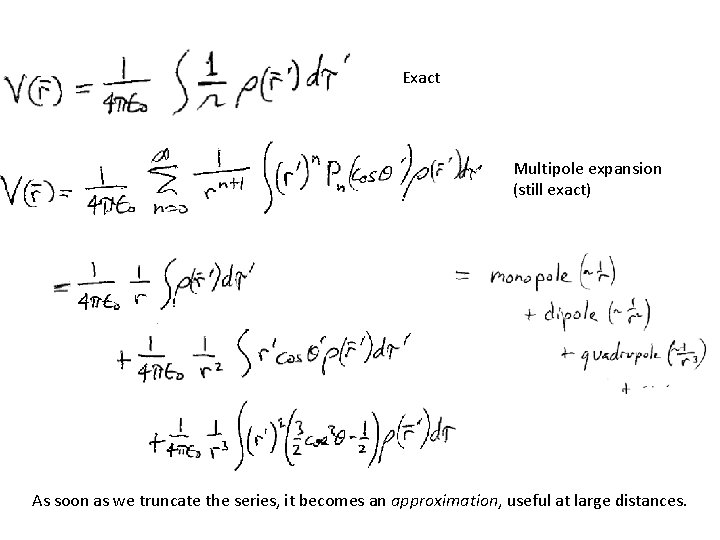 V(r̄) = 1/4πε₀ ∫ 1/r ρ(r̄′) dτ′ Exact
V(r̄) = 1/4πε₀ ∞ Σ n=0 1/rⁿ⁺¹ ∫ (r′)ⁿ Pₙ(cosθ′) ρ(r̄′) dτ′ Multipole expansion
(still exact)
= 1/4πε₀ 1/r ∫ ρ(r̄′) dτ′
+ 1/4πε₀ 1/r² ∫ r′ cosθ′ ρ(r̄′) dτ′
+ 1/4πε₀ 1/r³ ∫ (r′)² (3/2 cos²θ - 1/2) ρ(r̄′) dτ
= monopole (~1/r)
+ dipole (~1/r²)
+ quadrupole (~1/r³)
+ ...
As soon as we truncate the series, it becomes an approximation, useful at large distances.